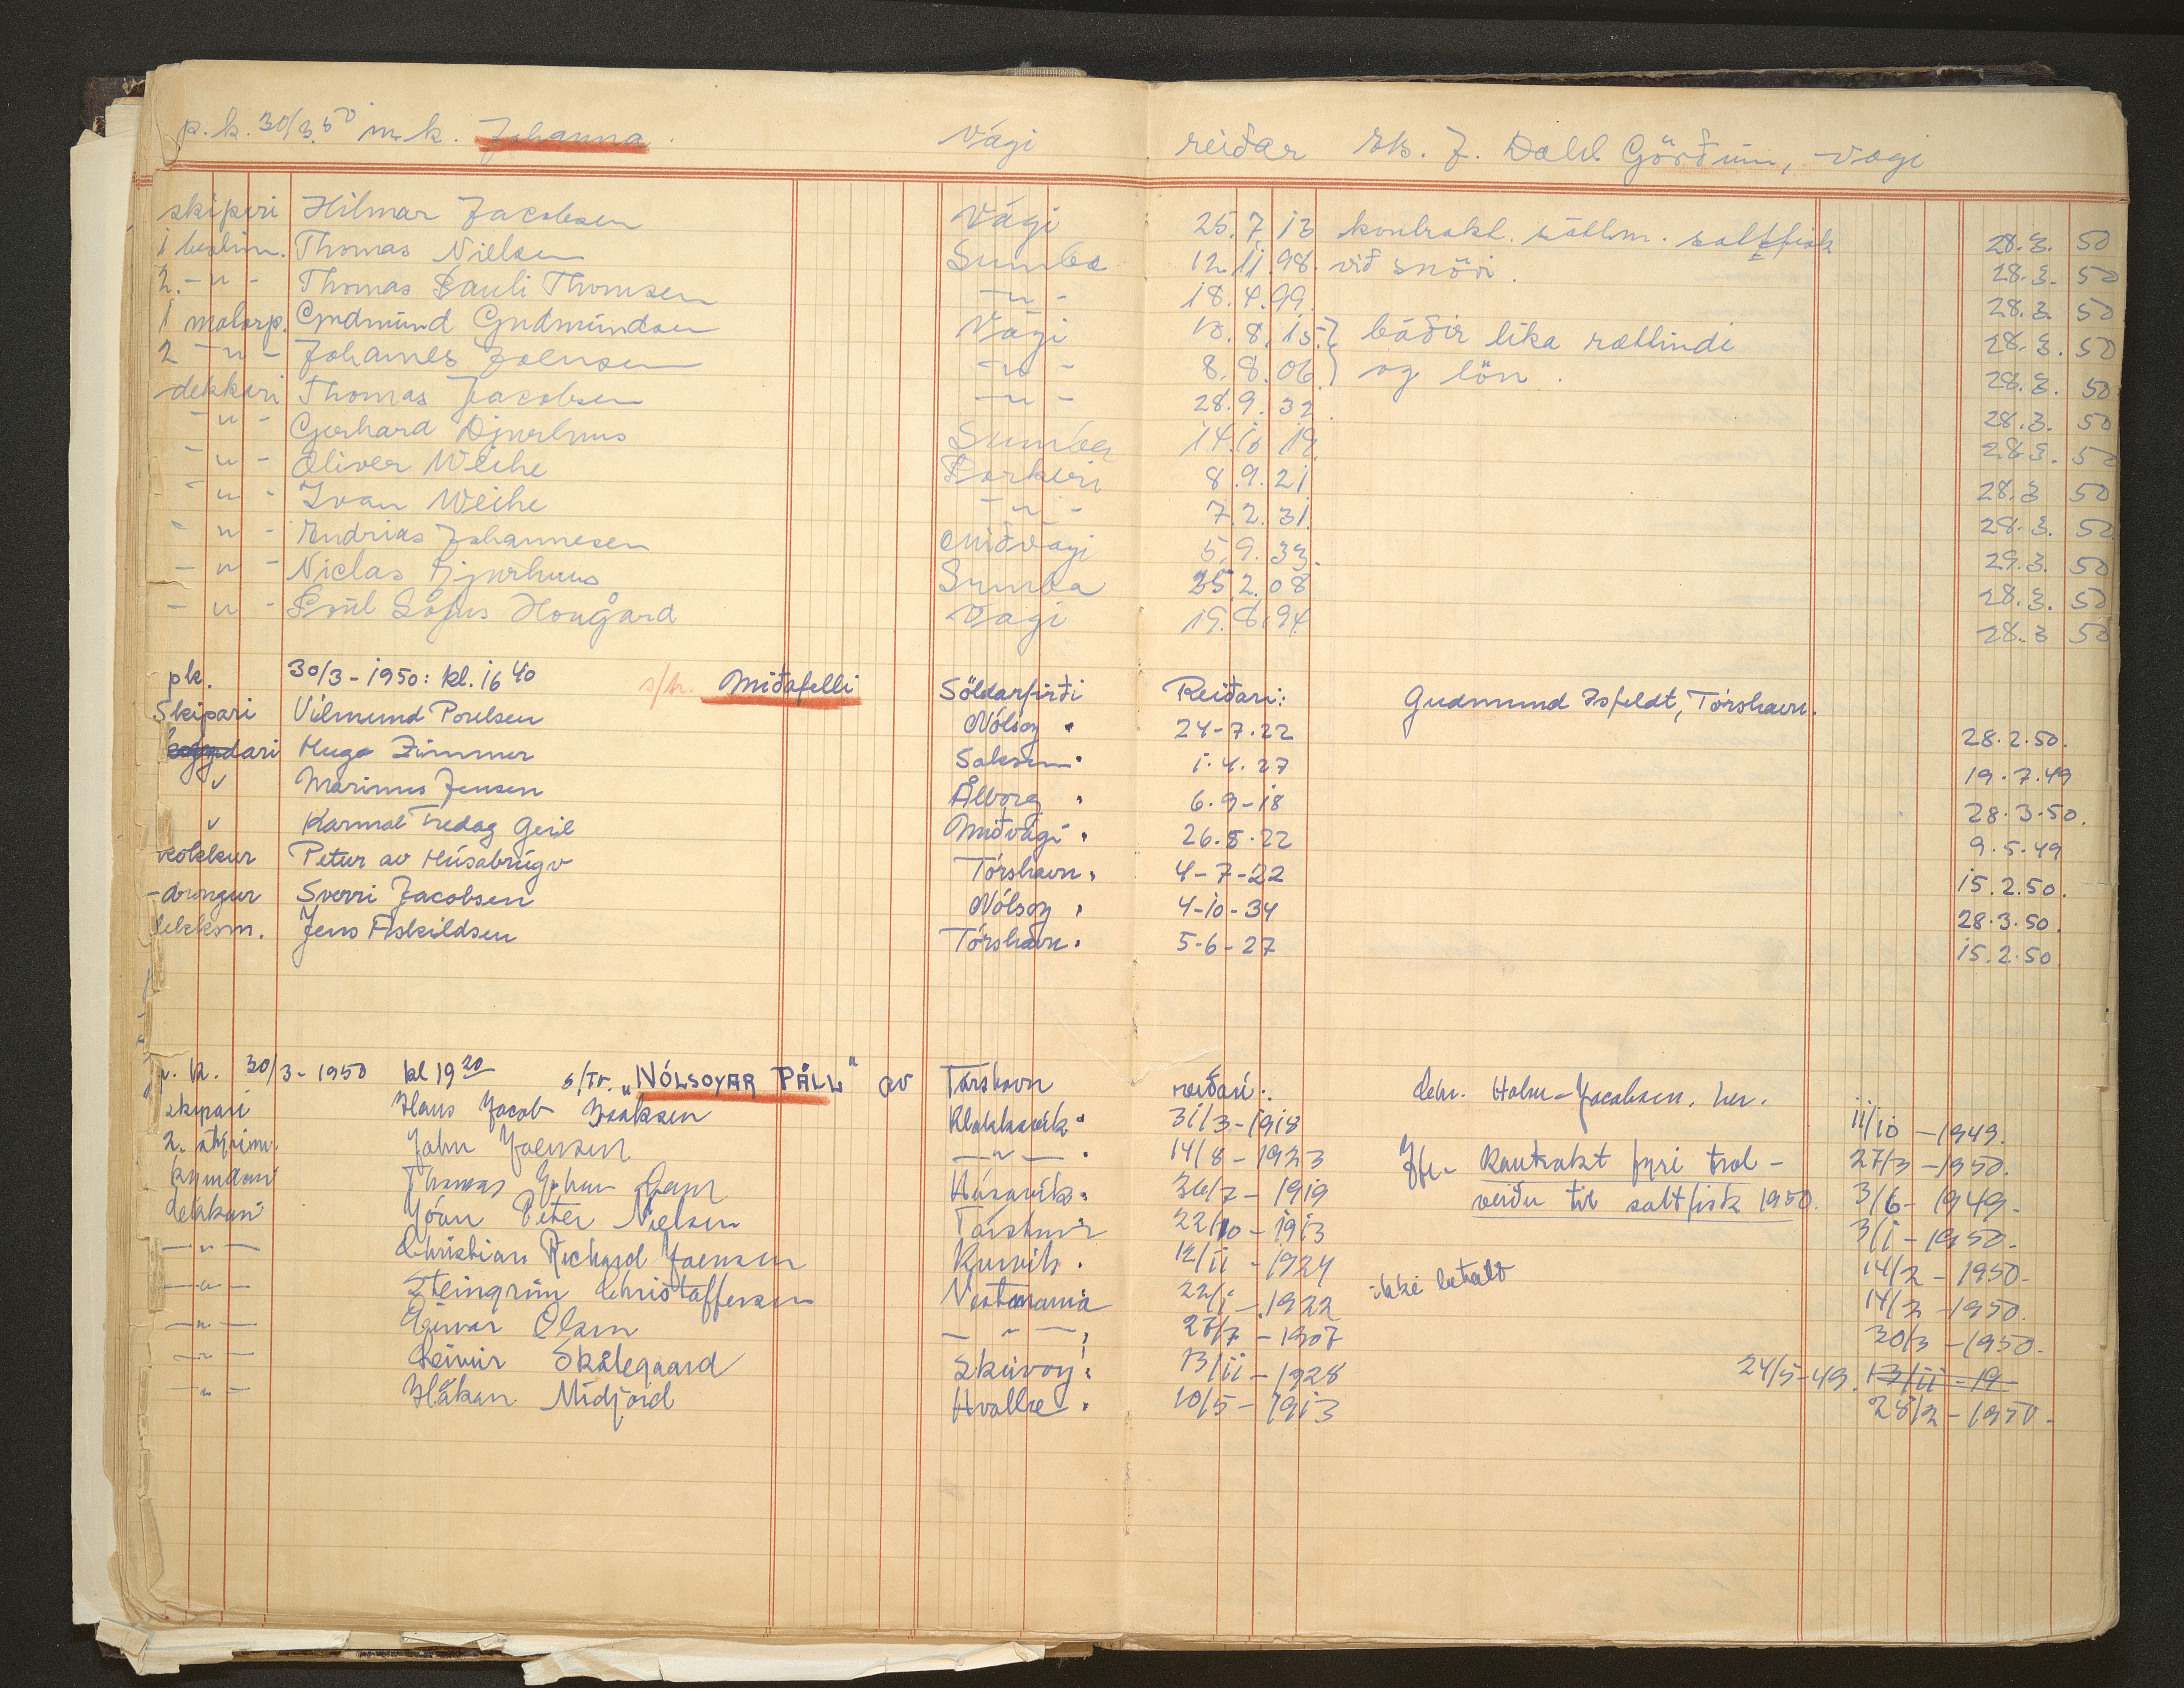 p.k. 30/3 50 m.k. Johanna. Vági reiðar J. Dahl Görðum, Vagi
skipari Hilmar Jacobsen Vági 25.7.13 kontrakt. saltfisk 28.3.50
1 bestm. Thomas Nielsen Sumba 12.11.98. við snöri. 28.3.50
2. -"- Thomas Pauli Thomsen -"- 18.4.99 28.3.50
1 motorp. Gudmund Gudmundsen Vági 10.8.15 } báðir lika rættindi 28.3.50
2 -"- Johannes Joensen -"- 8.8.06 } og lön. 28.3.50
dekkari Thomas Jacobsen -"- 28.9.32. 28.3.50
-"- Gerhard Djurhuus Sumba 14.10.19 28.3.50
-"- Oliver Weihe Porkeri 8.9.21 28.3 50
-"- Ivan Weihe -"- 7.2.31 28.3.50
-"- Andrias Johannesen Miðvagi 5.9.33. 29.3.50
-"- Niclas Djurhuus Sumba 25.2.08 28.3.50
-"- Poul Sofus Hougård Vagi 19.8.94 28.3 50
pk. 30/3-1950: kl. 16 40 s/k. Miðafelli Söldarfirði Reiðari: Gudmund Isfeldt, Tórshavn.
Skipari Vilmund Poulsen Nólsoy " 24-7-22 28.2.50.
Hugo Zimmer Saksun " 1.4.27 19.7.49
v Marinus Jensen Ålborg " 6.9-18 28.3.50.
v Karmal Fredag Geil Miðvági " 26.8.22 9.5.49
kokkur Petur av Húsabrúgv Tórshavn " 4-7-22 15.2.50.
-drongur Sverri Jacobsen Nólsoy " 4-10-34 28.3.50.
dekksm. Jens Askildsen Tórshavn " 5-6-27 15.2.50
p.k. 30/3-1950 kl 19 20 s/tr. "NÓLSOYAR PÁLL" av Tórshavn reiðari: Chr. Holm-Jacobsen, her.
skipari Hans Jacob Isaksen Klakksvik " 31/3-1918 11/10-1949.
2. stýrim. John Joensen -"- " 14/8-1923 Jfr. Kontrakt fyri trol- 27/3-1950.
kyndari Thomas Johan Dam Húsavik " 26/7-1919 veiðu til saltfisk 1950. 3/6-1949.
dekkari Jóan Peter Nielsen Tórshavn 22/10-1913 3/1-1950.
-"- Christian Richard Joensen Kunoih. 12/11-1924 14/2-1950-
-"- Steingrim Christoffersen Vestmanna 22/1-1922 ikki betalt 14/2-1950.
-"- Olsen -"- 27/7-1907 30/3-1950.
-"- Leivur Skålegaard Skúvoy " 13/11-1928 24/5-49. 13/11-19
-"- Håkun Midjord Hvalba " 10/5-1913 28/2-1950.